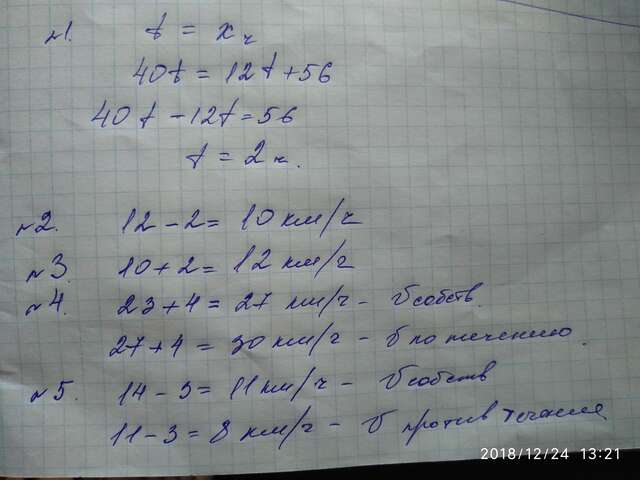 №1. t = x ч
40t = 12t + 56
40t - 12t = 56
t = 2 ч.
№2. 12 - 2 = 10 км/ч
№3. 10 + 2 = 12 км/ч
№4. 23 + 4 = 27 км/ч - v собств.
27 + 4 = 30 км/ч - v по течению.
№5. 14 - 3 = 11 км/ч - v собств
11 - 3 = 8 км/ч - v против течения
2018/12/24 13:21